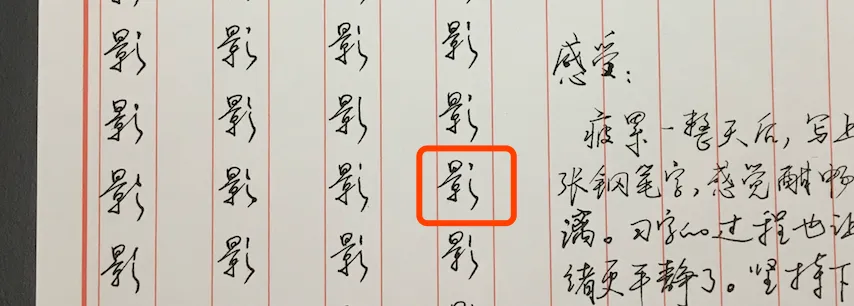 影 影 影 影
影 影 影 影
影 影 影 影
影 影 影 影
感受：
疲累一整天后，写上
张钢笔字，感觉酣畅
漓。习字的过程也让
绪更平静了。坚持下